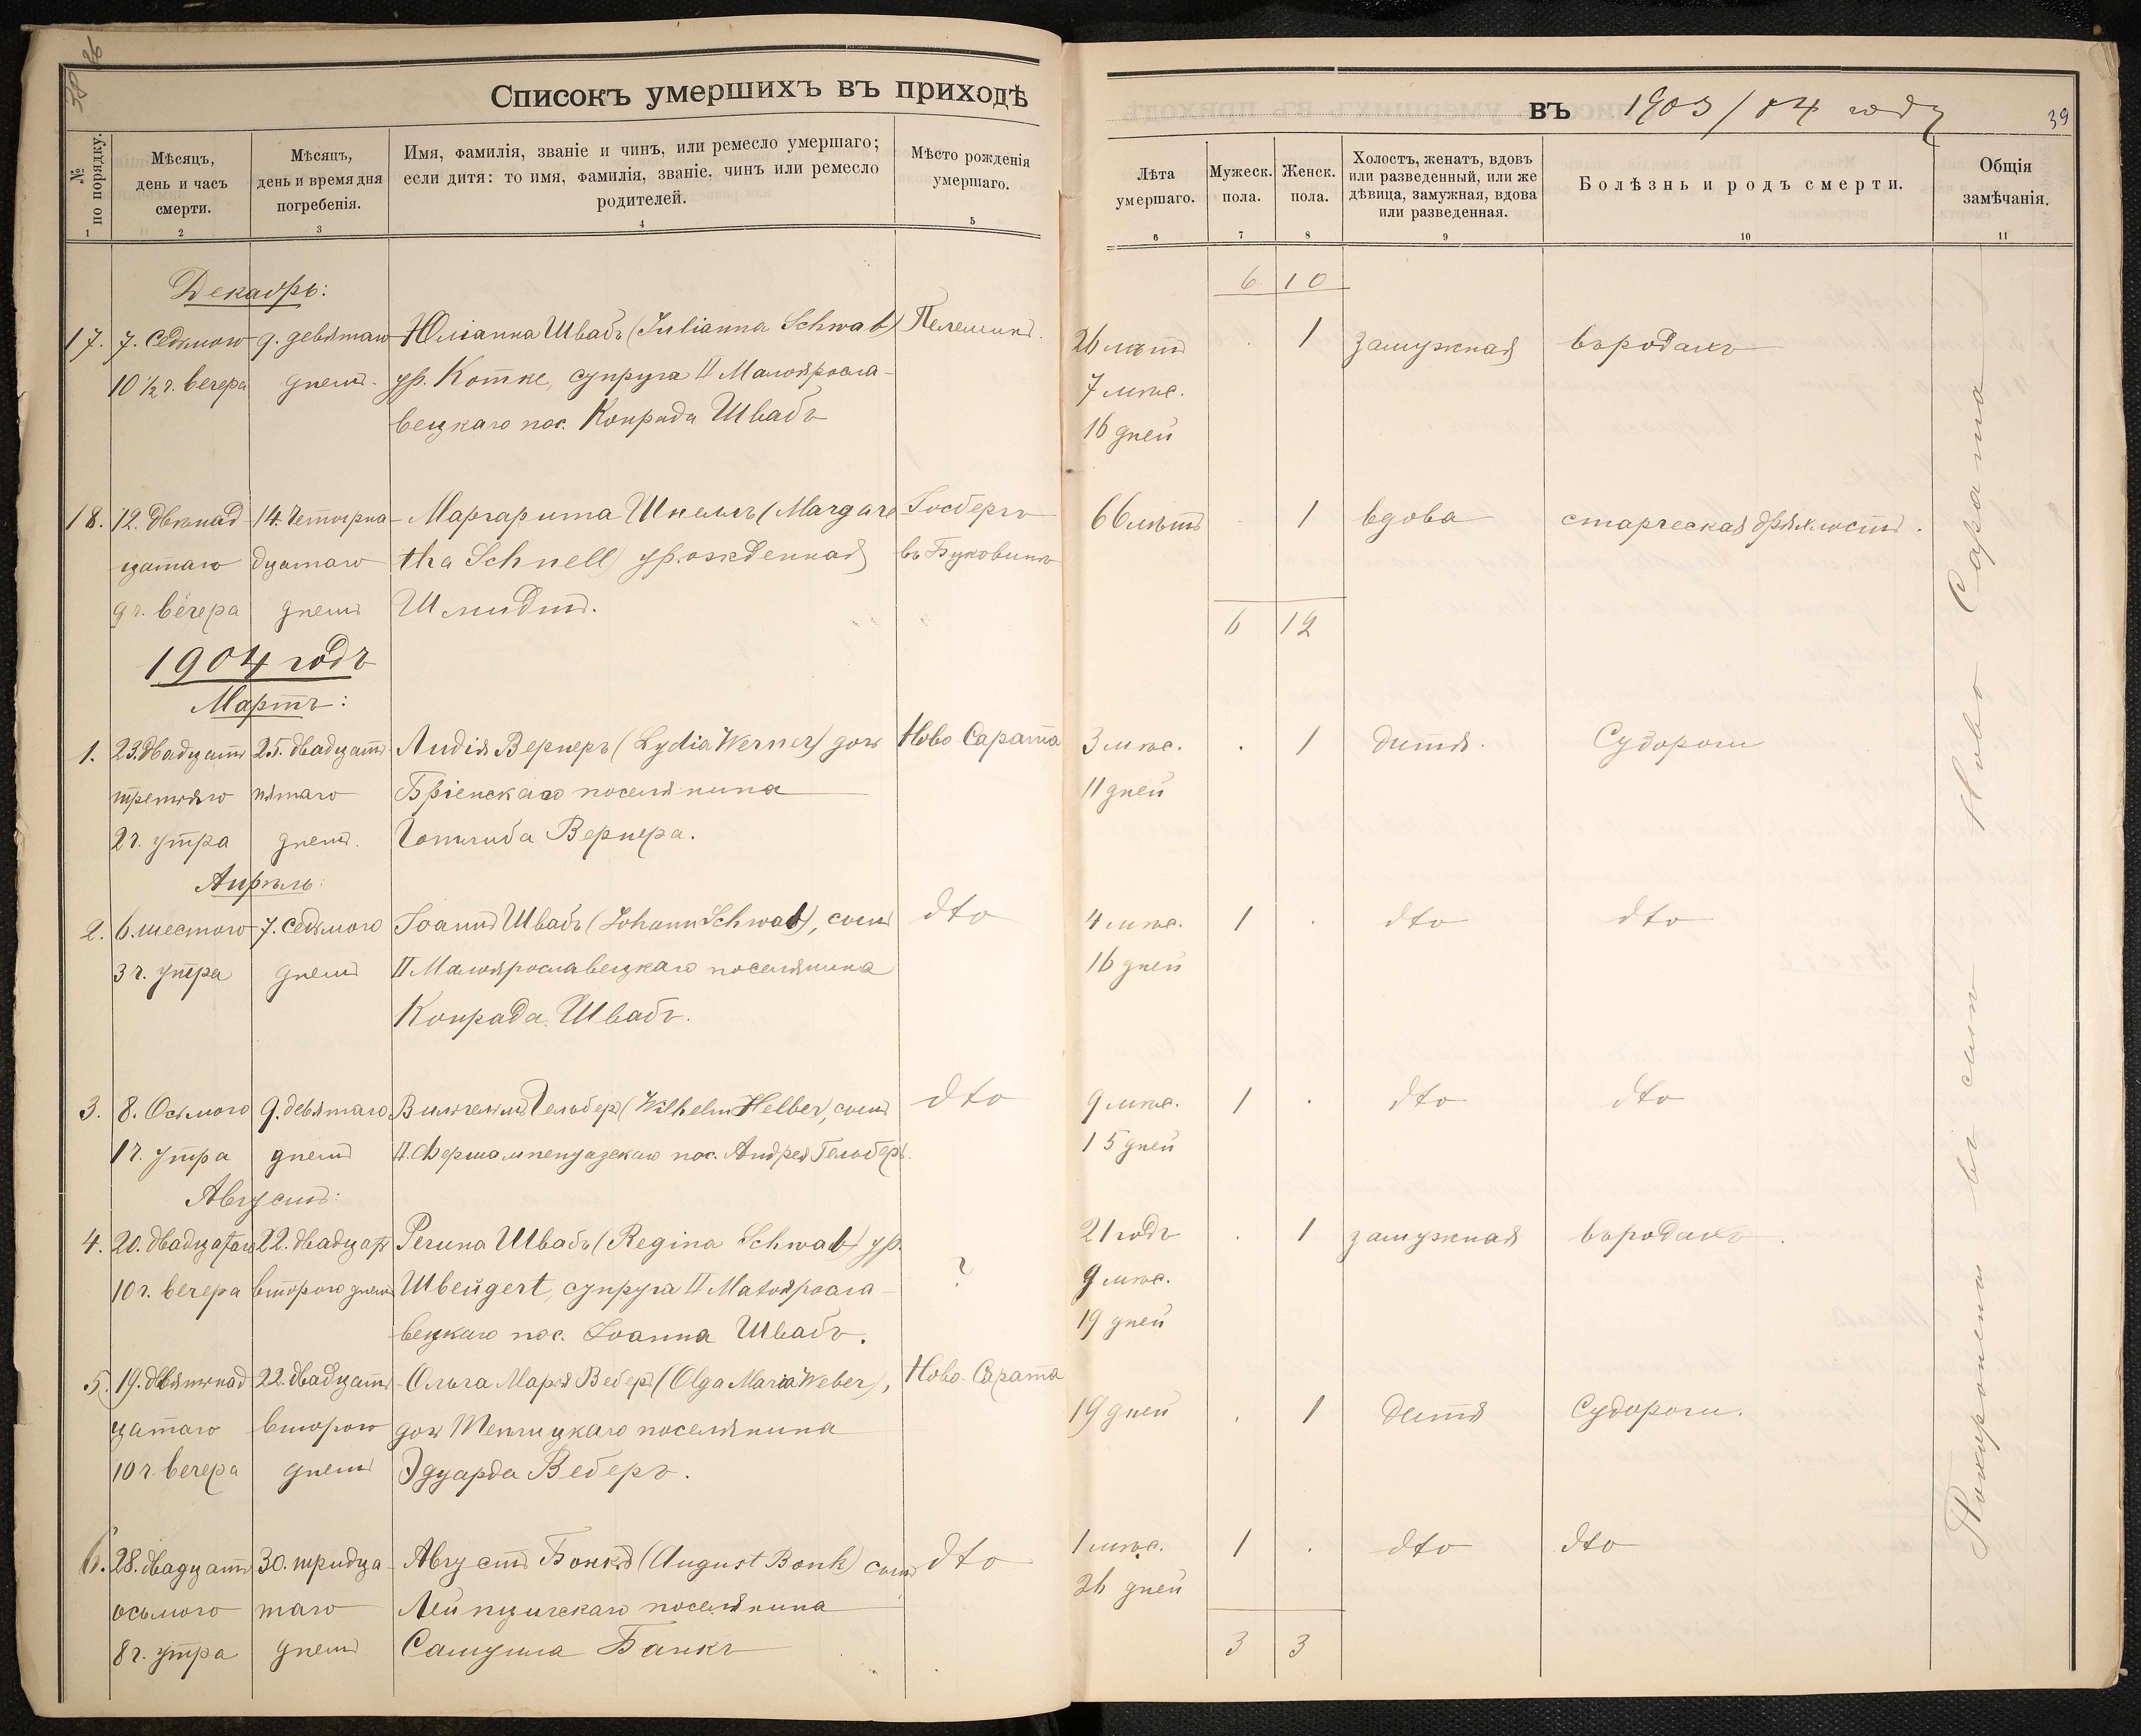 38 26
Списокъ умершихъ въ приходѣ
№ по порядку.
Мѣсяцъ, день и часъ смерти.
Мѣсяцъ, день и время дня погребенія.
Имя, фамилія, званіе и чинъ, или ремесло умершаго;
если дитя: то имя, фамилія, званіе, чинъ или ремесло
родителей.
Мѣсто рожденія умершаго.
1 2 3 4 5
Декабрь:
17. 7. седьмого 9. девятаго Юліанна Швабъ (Julianna Schwab)
10 1/2 ч. вечера днемъ. ур. Котке, супруга II Малояросла-
вецкаго пос. Конрада Швабъ
18. 12. двѣнад 14. четырна- Маргарита Шнелль (Margare Госбергъ
цатаго дцатаго tha Schnell) урожденная въ Буковинѣ
9 ч. вечера днемъ Шмидтъ.
1904 годъ
Мартъ:
1. 23. двадцать 25. двадцать Лидія Вернеръ (Lydia Werner) дочь Ново Сарата
третьяго пятаго Бріенскаго поселянина
2 ч. утра днемъ. Готлиба Вернера.
Апрѣль:
2. 6. шестого 7. седьмого Іоаннъ Швабъ (Johann Schwab), сынъ dto
3 ч. утра днемъ II Малоярославецкаго поселянина
Конрада Швабъ.
3. 8. Осьмого 9. девятаго Вильгельмъ Гельберъ (Wilhelm Helber), сынъ dto
1 ч. утра днемъ II. Фершампенуазскаго пос. Андрея Гельберъ.
Августъ:
4. 20. двадцатаго 22. двадцать Регина Швабъ (Regina Schwab) ур.
10 ч. вечера второго днемъ Швейgert, супруга II Малояросла- ?
вецкаго пос. Іоанна Швабъ.
5. 19. девятнад 22. двадцать Ольга Марія Веберъ (Olga Maria Weber), Ново-Сарата
цатаго второго дочь Теплицкаго поселянина
10 ч. вечера днемъ Эдуарда Веберъ.
6. 28. двадцать 30. тридца- Августъ Бонкъ (August Bonk) сынъ dto
осьмого таго Лейпцигскаго поселянина
8 ч. утра днемъ Самуила Банкъ
въ 1903/04 году
39
Лѣта умершаго.
Мужеск. пола.
Женск. пола.
Холостъ, женатъ, вдовъ
или разведенный, или же
дѣвица, замужная, вдова
или разведенная.
Болѣзнь и родъ смерти.
Общія замѣчанія.
6 7 8 9 10 11
6 10
26 лѣтъ . 1 замужная въ родахъ
7 мѣс.
16 дней
66 лѣтъ . 1 вдова старческая дряхлость.
6 12
3 мѣс. . 1 дитя. Судороги
11 дней
4 мѣс. 1 . dto dto
16 дней
9 мѣс. 1 . dto dto
15 дней
21 годъ . 1 замужная въ родахъ.
9 мѣс.
19 дней
19 дней . 1 дитя Судороги.
1 мѣс. 1 . dto dto
26 дней
3 3
Похоронены въ селѣ Ново Сарата